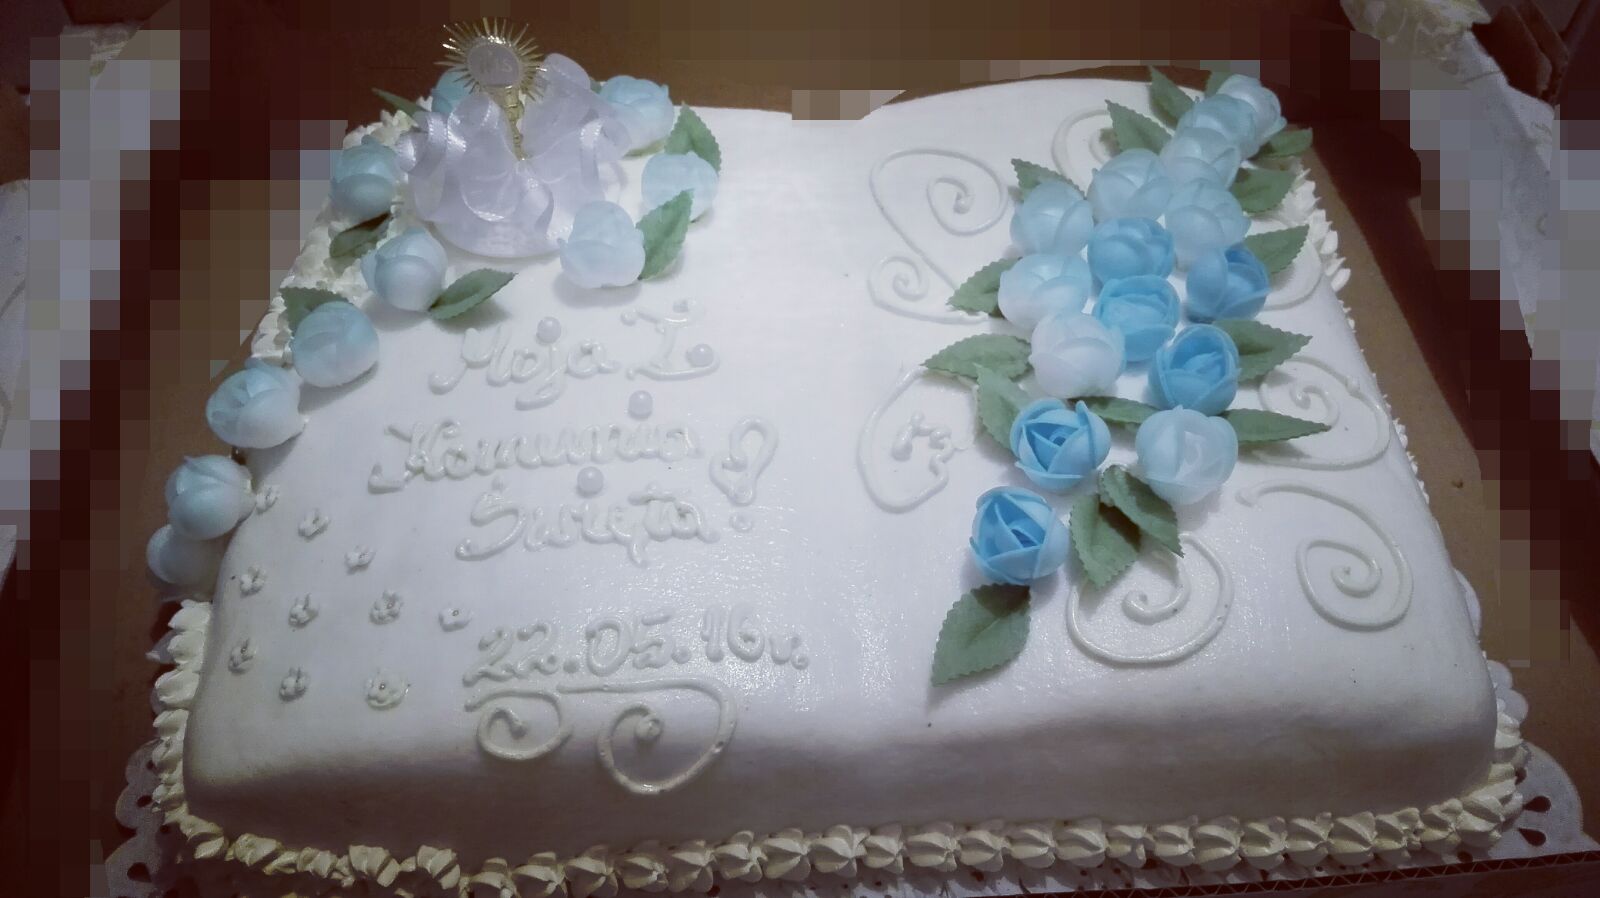 IHS
Moja I
Komunia
Święta!
22.05.16r.